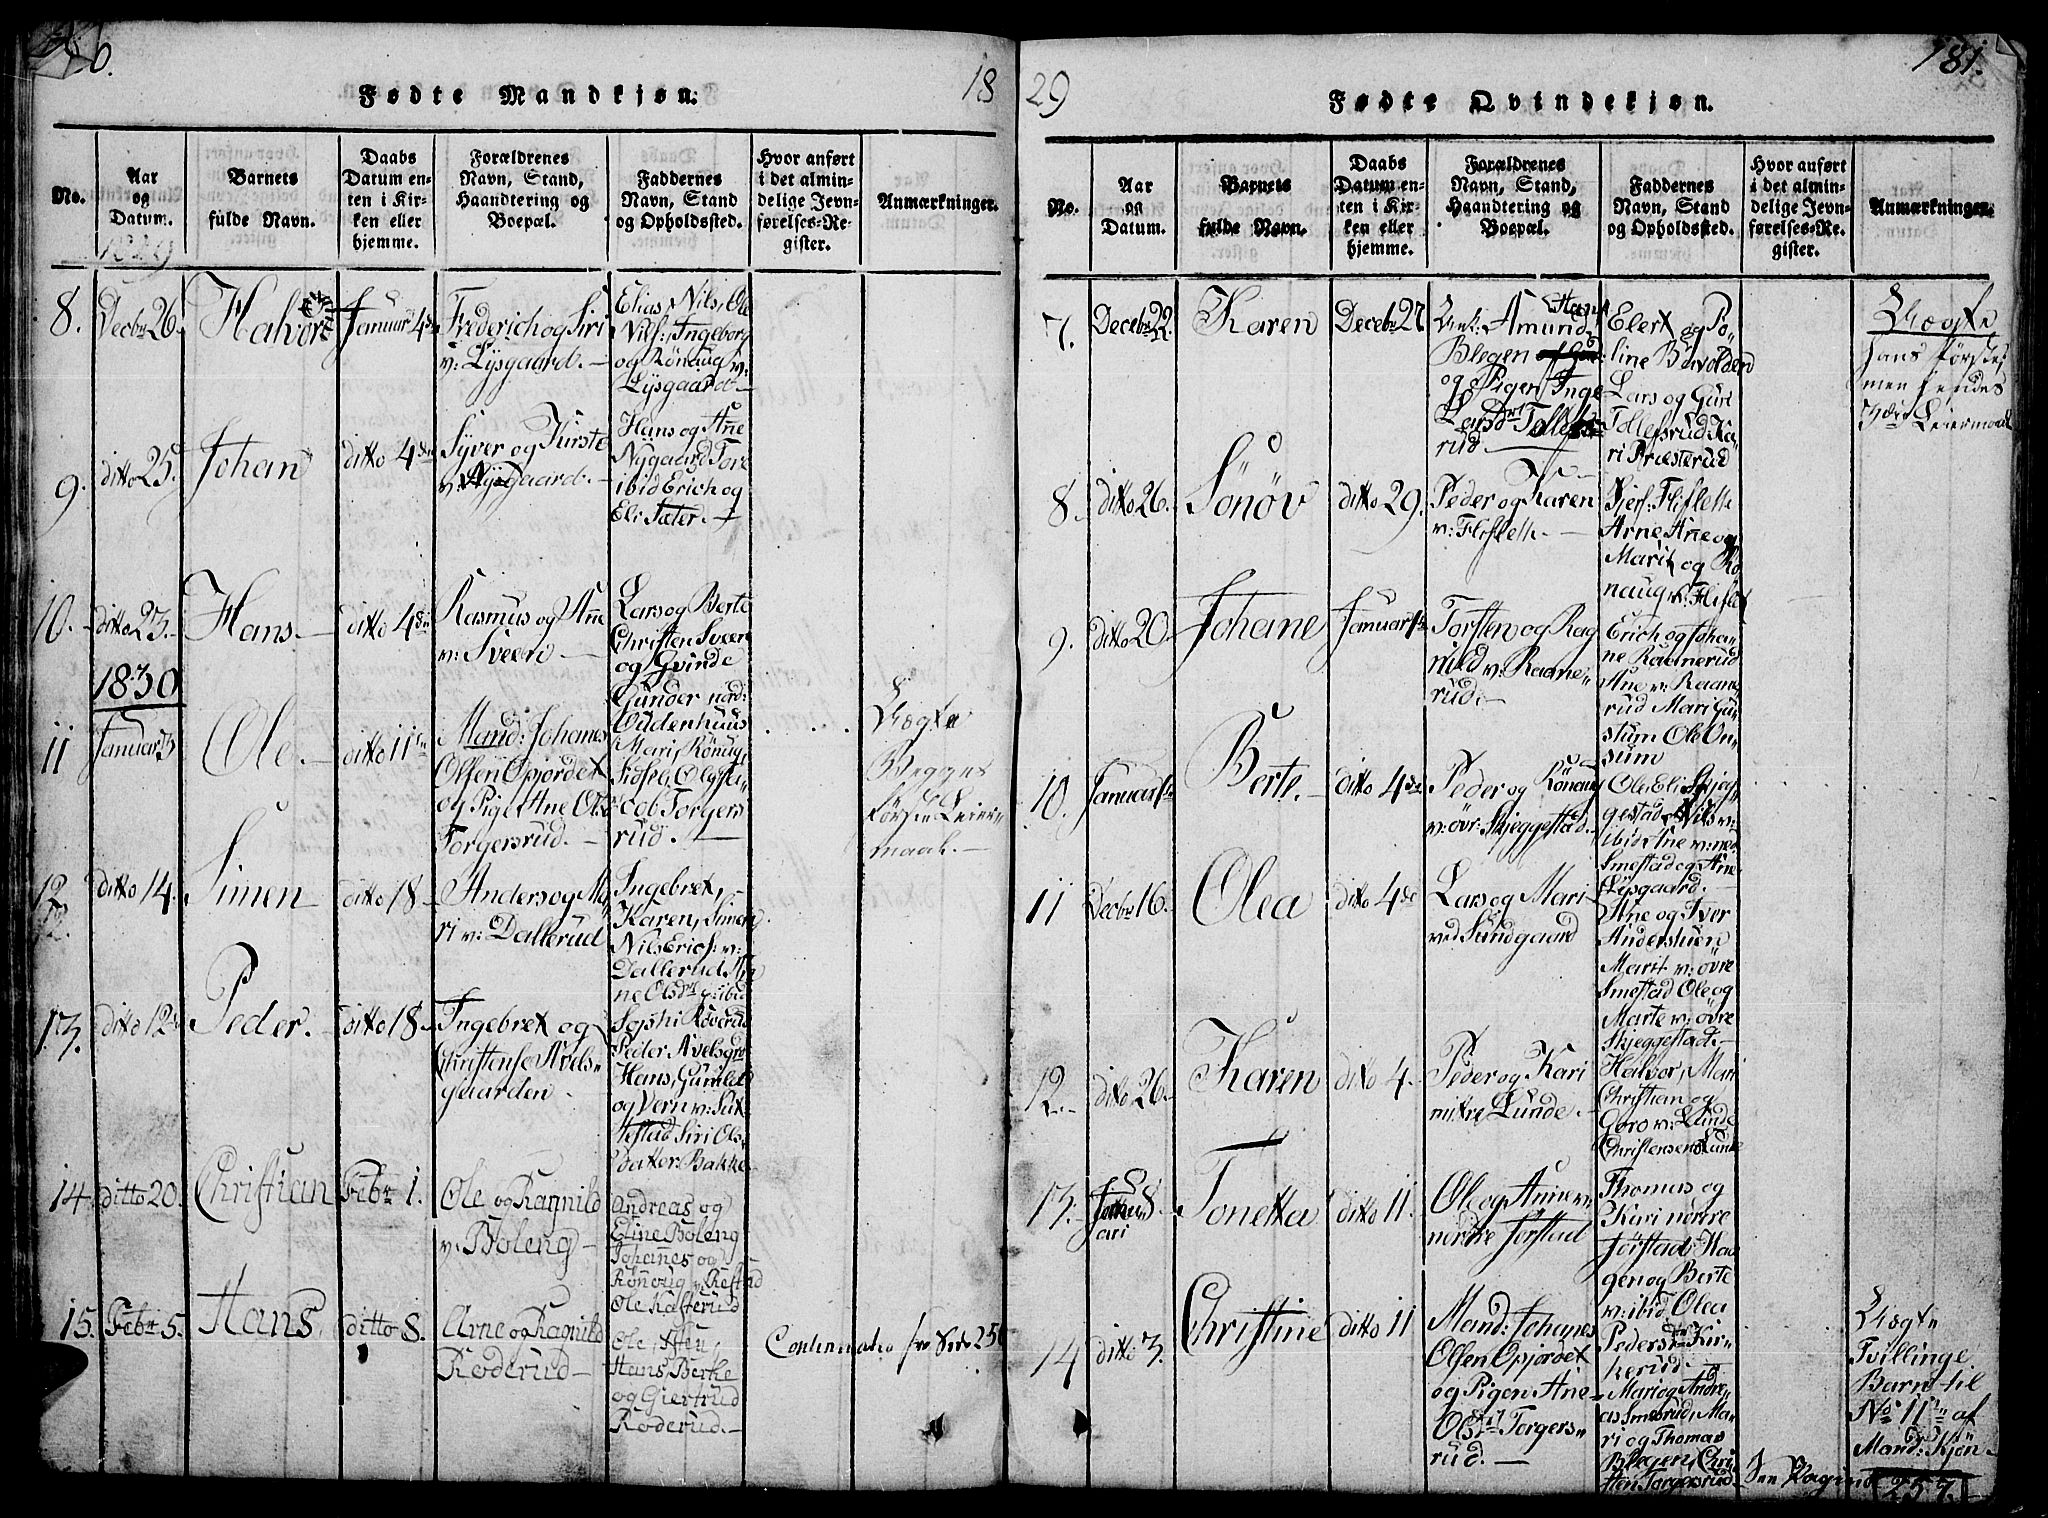 0.
Fødte Mandkjøn.
18
No.
Aar
og
Datum.
1829
Barnets
fulde Navn.
Daabs
Datum en-
ten i Kir-
ken eller
hjemme.
Forældrenes
Navn, Stand,
Haandtering og
Boepæl.
Faddernes
Navn, Stand
og Opholdssted.
Hvor anført
i det almin-
delige Jevn-
førelses-Re-
gister.
Anmærkninger.
8.
Decbr 26.
Halvor
Januar 4de
Frederich og Siri
v: Lysgaard. —
Elias, Nils, Ole
Nils: Ingeborg
og Rönnug v:
Lysgaard. —
9.
ditto 25.
Johan
ditto 4de
Syver og Kirste
v: Nygaard. —
Hans og Añe
Nygaard Tore
ibid Erich og
Eli Sæter. —
10.
ditto 23. —
Hans. —
ditto 4de
Rasmus og Añe
v: Sveen —
Lars og Berte
Christen Sveen
og Qvinde
Gunder nord:
1830
11
Januar 3
Ole. —
ditto 11te
Mand: Johanes
Olsen Opjordet
og Piger Ane Olsd
Torgersrud. —
Oudenhuus
Mari, Rönug,
Sidsel, Ole Ja-
cob Torgers
rud. —
Uægte
Begges
første Leier-
maal. —
12
12.
ditto 14.
Simen
ditto 18
Anders og Ma,
ri v: Dallerud
Ingebret,
Karen, Simen
Nils Erich v:
Dallerud An
ne Olsdtr ibid
13.
ditto 12te
Peder.
ditto 18
Ingebret og
Christense Avels-
gaarden.
Sophi Röverud
Peder Avelsgrd
Hans, Gunild
og Vern v: Sax
testad Siri Ols-
datter: Bakke
14.
ditto 20.
Christian
Febr 1.
Ole og Ragnild
v: Boleng —
Andreas og
Eline Boleng
Johañes og
Rönoug v. Refstad
Ole Kasserud
15.
Febr 5.
Hans,
ditto 8.
Arne og Ragnild
Röderud —
Ole,
Hans, Berte
og Giertrud
Röderud. —
Continuatio fra Side 25
29
Fødte Qvindekjøn.
181.
No.
Aar
og
Datum.
Barnets
fulde Navn.
Daabs
Datum en-
ten i Kir-
ken eller
hjemme.
Forældrenes
Navn, Stand,
Haandtering og
Boepæl.
Faddernes
Navn, Stand
og Opholdssted.
Hvor anført
i det almin-
delige Jevn-
førelses-Re-
gister.
Anmærkninger.
7.
Decebr 22.
Karen
Decebr 27
Enk: Amund Hans
Blegen
og Pigen Inge
Larsdtr Tollefs
rud. —
Elert og Pö
line Bövolden
Lars og Guri
Tollefsrud Ka
ri Præsterud
Uægte
hans første,
men hendes
3die Leiermaal
8.
ditto 26.
Sönöv
ditto 29.
Peder og Karen
v: Flisleth. —
Sjers: Flisleth
Arne Añe og
Marit og Rö
naug v: Flislet
9.
ditto 20
Johane
Januar 1te
Torsten og Rag
nild v: Raane-
rud. —
Erich og Joha-
ne Raanerud
Ane v: Raane,
rud Mari Gu-
stum Ole On-
sum
10.
Januar 1te
Berte. —
ditto 4de
Peder og Rönaug
v: övr: Skjeggestad.
Ole Eli Skjeg-
gestad Nils v:
ibid Ane v: ned.
Smestad og Ane
Lysgaard. —
11
Decbr 16.
Olea
ditto 4de
Lars og Mari
ved Sundgaard
Ane og Iver
Anders huen
Marit v: övre
Smestad Ole og
Marte v: övre
Skjeggestad. —
12.
ditto 26
Karen
ditto 4.
Peder og Kari
mitre Lunde. —
Halvor, Mari
Christian og
Goro v: Lunde
Christensen Lunde
13.
8.
ari
Tonetta
ditto 11.
Ole og Anne v:
nörre Jörstad
Thomas og
Kari nörre
Jörstad Haa
gen og Berte
v: ibid Olea
14
ditto 3.
Christine
ditto 11
Mand: Johanes
Olsen Opjordet
og Pigen Ane
Olsdtr Torgers-
rud. —
Pedersdtr Kir-
kerud. —
Mari og Andre-
as Smesrud, Ma-
ri og Thomas
Blegen, Chri
sten Torgersrud
Uægte
Tvillinge
Barn til
No 11te af
Mand: Kjøn
See Pagina 257.